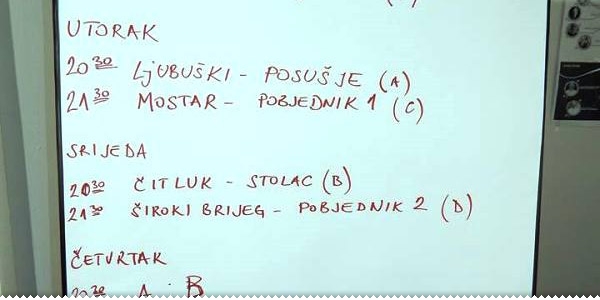 UTORAK
20³⁰ LJUBUŠKI - POSUŠJE (A)
21³⁰ MOSTAR - POBJEDNIK 1 (C)
SRIJEDA
20³⁰ ČITLUK - STOLAC (B)
21³⁰ ŠIROKI BRIJEG - POBJEDNIK 2 (D)
ČETVRTAK
20³⁰ A : B